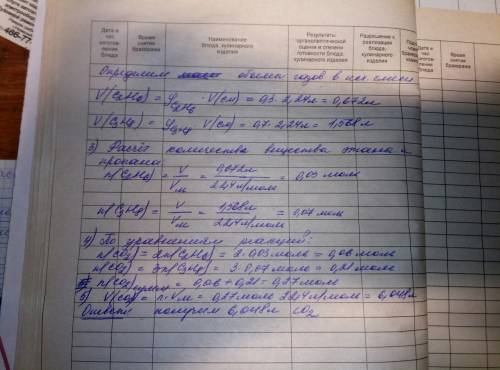 466-77
Дата и час изготовления блюда
Время снятия бракеража
Наименование блюда, кулинарного изделия
Результаты органолептической оценки и степени готовности блюда, кулинарного изделия
Разрешение к реализации блюда, кулинарного изделия
Дата и час изготовления блюда
Время снятия бракеража
Определим объем газов в
V(C2H6) = φC2H6 · V(см) = 0,3 · 2,24л = 0,672л
V(C3H8) = φC3H8 · V(см) = 0,7 · 2,24л = 1,568л
3) Расчёт количества вещества этана и
пропана
n(C2H6) = V/Vм = 0,672л/22,4л/моль = 0,03 моль
n(C3H8) = V/Vм = 1,568л/22,4л/моль = 0,07 моль
4) По уравнениям реакций:
n(CO2) = 2n(C2H6) = 2 · 0,03 моль = 0,06 моль
n(CO2) = 3n(C3H8) = 3 · 0,07 моль = 0,21 моль
n(CO2) = 0,06 + 0,21 = 0,27 моль
5) V(CO2) = n · Vм = 0,27 моль · 22,4 л/моль = 6,048 л
Ответ: получим 6,048 л CO2